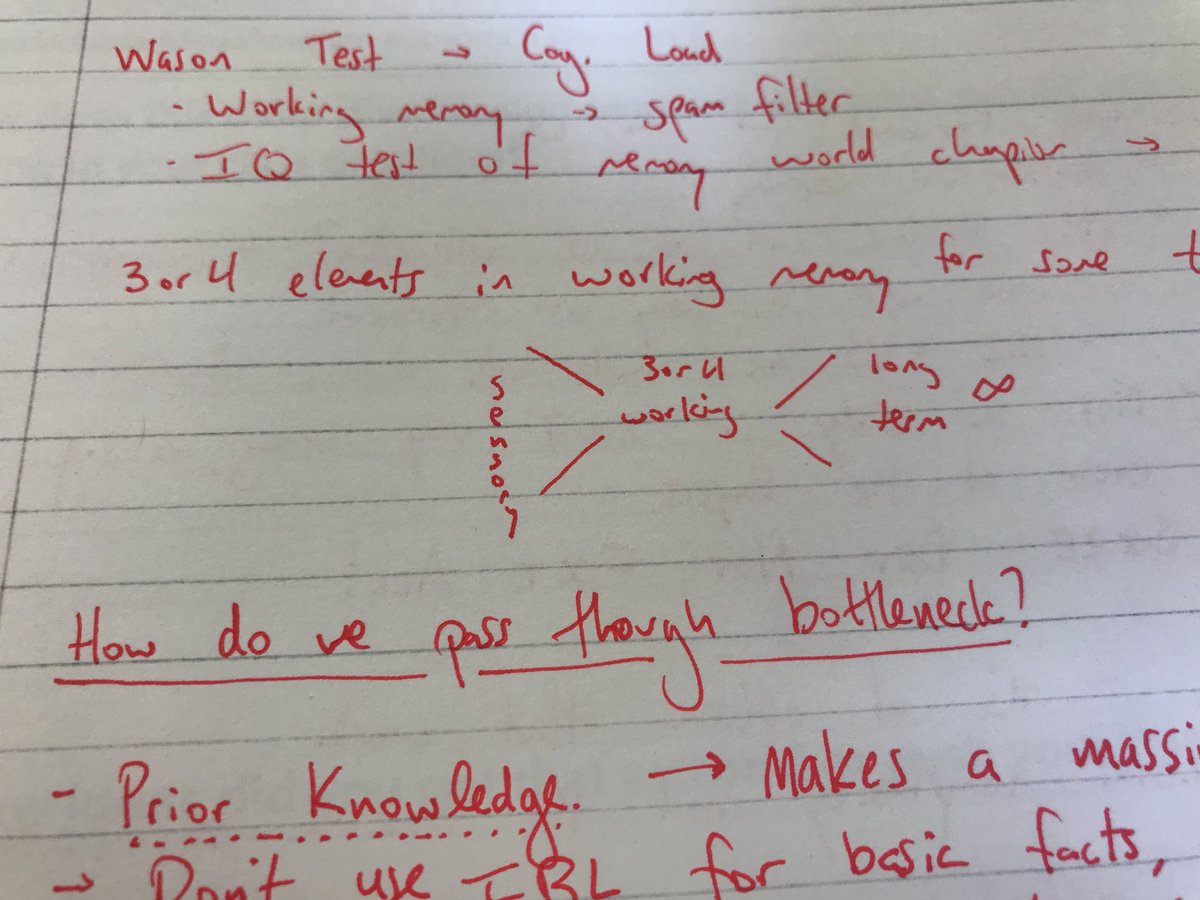 Wason Test → Cog. Load
· Working memory → spam filter
· IQ test of memory world chapion →
3 or 4 elements in working memory for some t
sensory
3 or 4
working
long
term
∞
How do we pass though bottleneck?
- Prior Knowledge. → Makes a massi
→ Don't use IBL for basic facts,